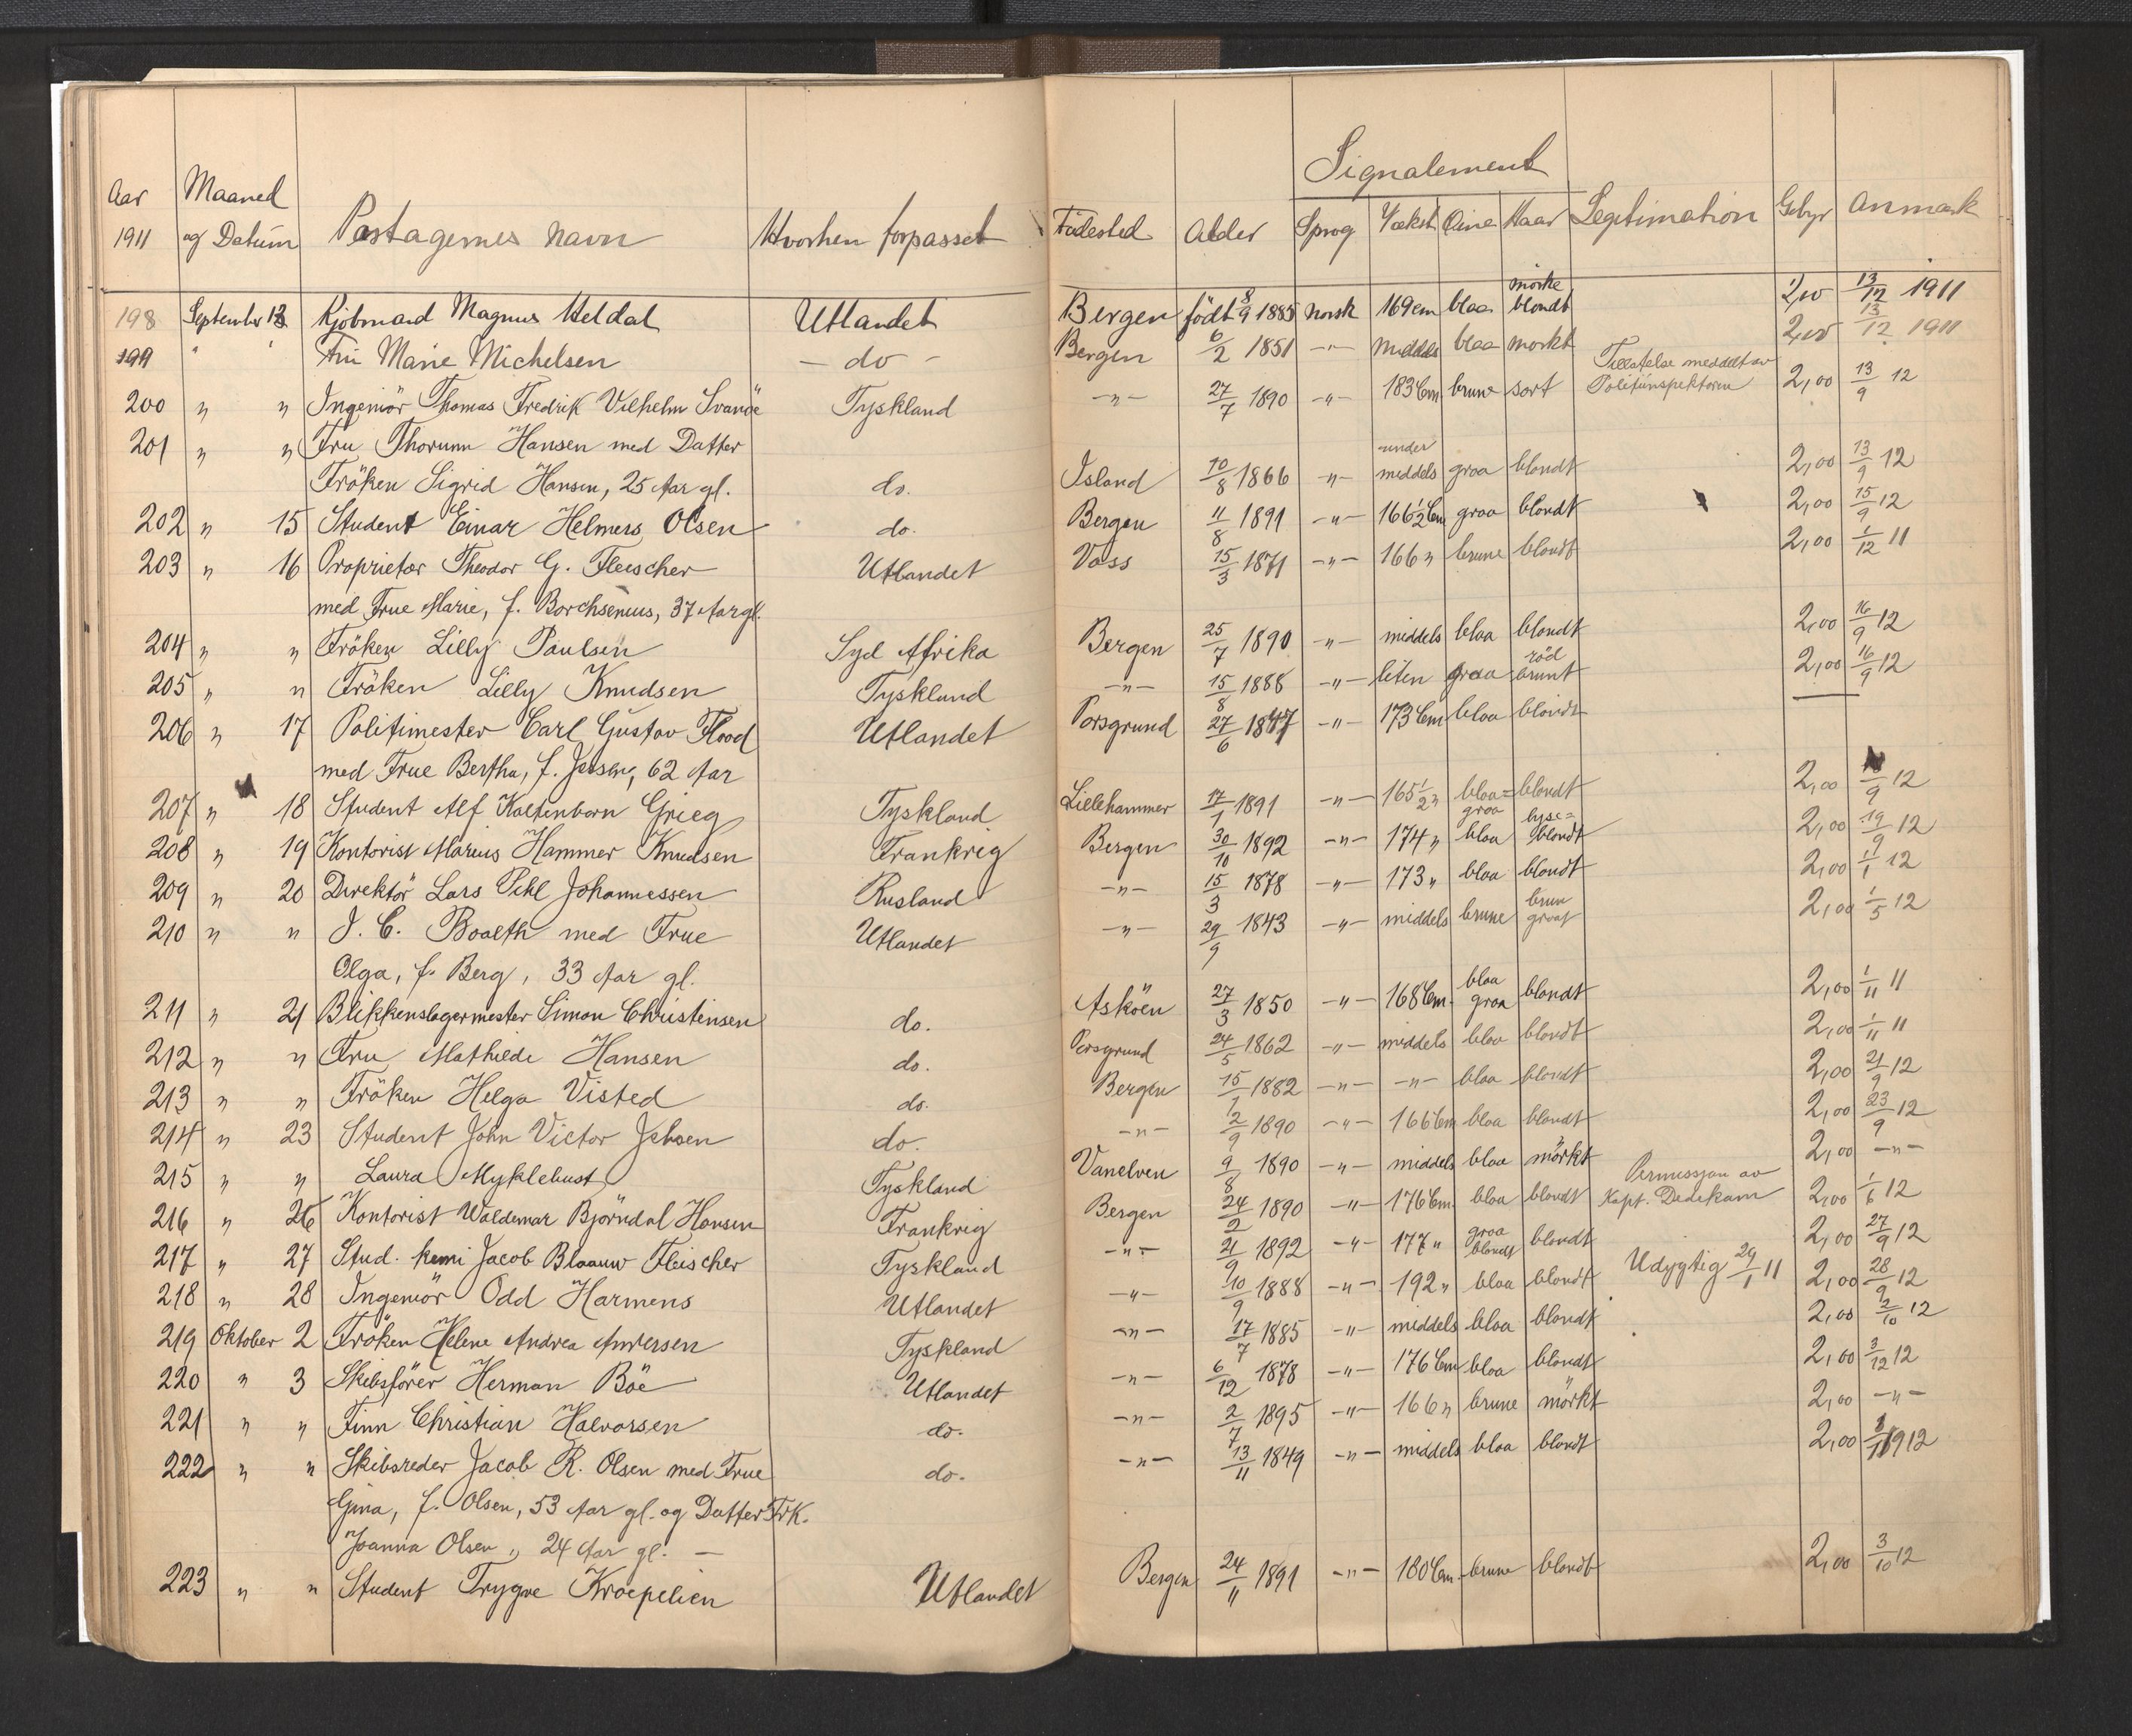 Signalement
Aar Maaned
1911 og Datum Pastagernes navn Hvorhen forpasset Födested Alder Sprog Vækst Öine Haar Legitimation Gebyr Anmærk
mörke
198 September 13 Kjöbmand Magnus Heldal Utlandet Bergen födt 8/9 1885 norsk 169 cm blaa blondt 2,00 13/12 1911
199 " " Fru Marie Michelsen — do — Bergen 6/2 1851 -"- middels blaa mörkt 2,00 13/12 1911
Tillatelse meddelt av
200 " " Ingeniör Thomas Fredrik Vilhelm Svanöe Tyskland -"- 27/7 1890 -"- 183 Cm brune sort Politiinspektoren 2,00 13/9 12
201 " " Fru Thorunn Hansen med Datter under
Fröken Sigrid Hansen, 25 Aar gl. do. Island 10/8 1866 -"- middels graa blondt 2,00 13/9 12
202 " 15 Student Einar Helmers Olsen do. Bergen 11/8 1891 -"- 166 1/2 Cm graa blondt 2,00 15/9 12
203 " 16 Proprietær Theodor G. Fleischer Utlandet Voss 15/3 1871 -"- 166 " brune blondt 2,00 1/12 11
med Frue Marie, f. Borchsenius, 37 Aar gl.
204 " " Fröken Lilly Paulsen Syd Afrika Bergen 25/7 1890 -"- middels blaa blondt 2,00 16/9 12
röd
205 " " Fröken Lilly Knudsen Tyskland -"- 15/8 1888 -"- liten graa brunt 2,00 16/9 12
206 " 17 Politimester Carl Gustav Flood Utlandet Porsgrund 27/6 1847 -"- 173 Cm blaa blondt —
med Frue Bertha, f. Jessen, 62 Aar
207 " 18 Student Alf Kaltenborn Grieg Tyskland Lillehammer 17/1 1891 -"- 165 1/2 " blaa= blondt 2,00 /9 12
graa lyse=
208 " 19 Kontorist Marius Hammer Knudsen Frankrig Bergen 30/10 1892 -"- 174 " blaa blondt 2,00 19/9 12
209 " 20 Direktör Lars Pihl Johannessen Rusland -"- 15/3 1878 -"- 173 " blaa blondt 2,00 1/1 12
brun
210 " " J. C. Boalth med Frue Utlandet -"- 29/9 1843 -"- middels brune graat 2,00 1/5 12
Olga, f. Berg, 33 Aar gl.
blaa
211 " 21 Blikkenslagermester Simon Christensen do. Asköen 27/3 1850 -"- 168 Cm. graa blondt 2,00 1/11 11
212 " " Fru Mathilde Hansen do. Porsgrund 24/5 1862 -"- middels blaa blondt 2,00 1/11 11
213 " " Fröken Helga Visted do. Bergen 15/1 1882 -"- -"- blaa blondt 2,00 21/9 12
214 " 23 Student John Victor Jebsen do. -"- 2/9 1890 -"- 166 Cm blaa blondt 2,00 23/9 12
215 " " Laura Myklebust Tyskland Vanelven 9/8 1890 -"- middels blaa mörkt 2,00 -"-
Permissjon av
216 " 26 Kontorist Waldemar Björndal Hansen Frankrig Bergen 24/2 1890 -"- 176 Cm blaa blondt Kapt. Dedekam 2,00 1/6 12
graa
217 " 27 Stud. kemi Jacob Blaauw Fleischer Tyskland -"- 21/9 1892 -"- 177 " blondt blondt 2,00 27/9 12
218 " 28 Ingeniör Odd Harmens Utlandet -"- 10/9 1888 -"- 192 " blaa blondt Udygtig 29/1 11 2,00 28/9 12
219 Oktober 2 Fröken Helene Andrea Andersen Tyskland -"- 17/7 1885 -"- middels blaa blondt 2,00 2/10 12
220 " 3 Skibsförer Herman Böe Utlandet -"- 6/12 1878 -"- 176 Cm blaa blondt 2,00 3/12 12
221 " " Finn Christian Halvorsen do. -"- 2/7 1895 -"- 166 " brune mörkt 2,00 -"-
222 " " Skibsreder Jacob R. Olsen med Frue do. -"- 13/11 1849 -"- middels blaa blondt 2,00 1912
Gina, f. Olsen, 53 Aar gl. og Datter Frk.
Joanna Olsen, 24 Aar gl. —
223 " " Student Trygve Kroepelien Utlandet Bergen 24/11 1891 -"- 180 Cm. brune blondt 2,00 3/10 12